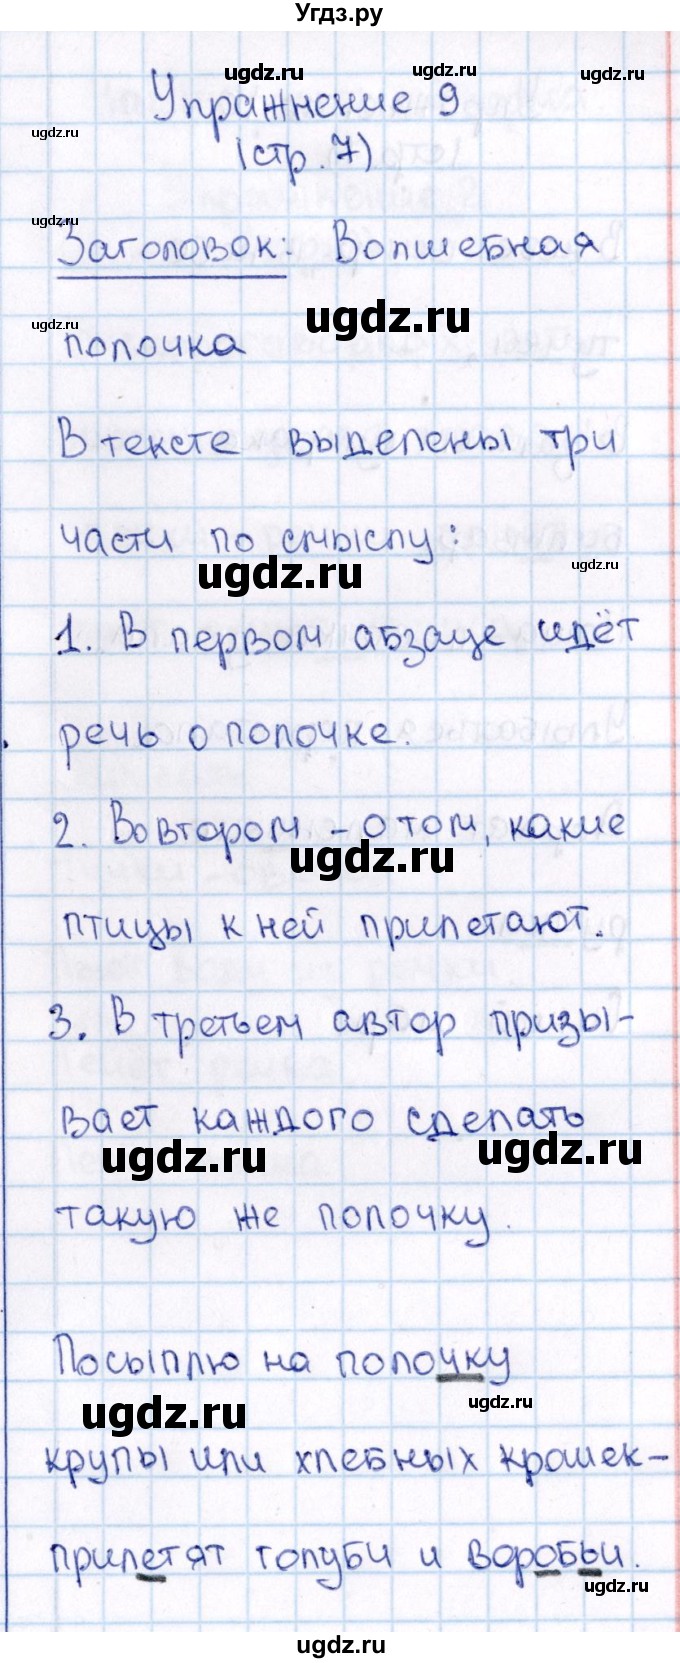 Угдз.ру
ugdz.ru
ugdz.ru
Упражнение 9
ugdz.ru
(стр. 7)
ugdz.ru
Заголовок: Волшебная
ugdz.ru
ugdz.ru
полочка
В тексте выделены три
части по смыслу:
ugdz.ru
ugdz.ru
1. В первом абзаце идёт
речь о полочке.
2. Во втором – о том, какие
ugdz.ru
птицы к ней прилетают.
3. В третьем автор призы-
вает каждого сделать
ugdz.ru
ugdz.ru
такую же полочку.
Посыплю на полочку
ugdz.ru
ugdz.ru
крупы или хлебных крошек –
прилетят голуби и воробьи.
ugdz.ru
ugdz.ru